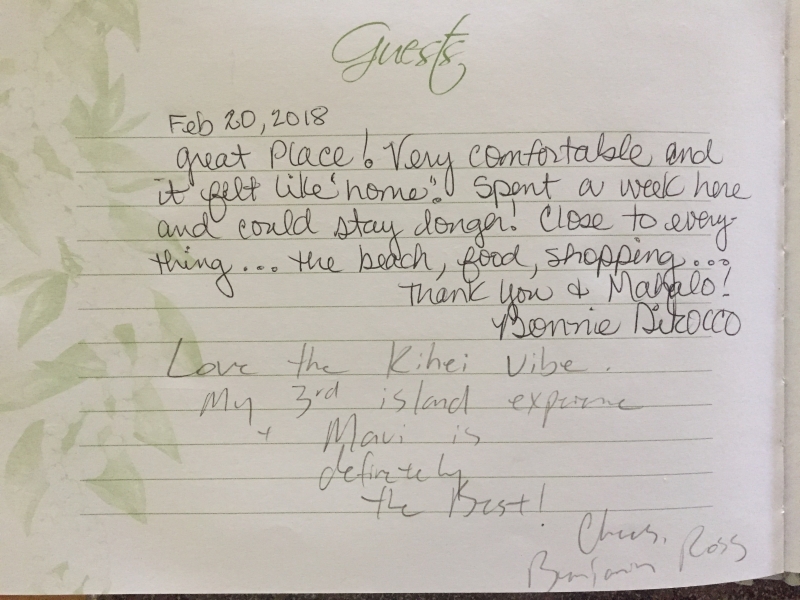 Guests
Feb 20, 2018
great Place! Very comfortable and
it felt like "home"! Spent a week here
and could stay longer! Close to every-
thing... the beach, food, shopping...
Thank you & Mahalo!
Bonnie DiRocco
Love the Kihei vibe.
My 3rd island experience
+ Maui is
definitely
the Best!
Cheers,
Benjamin Ross